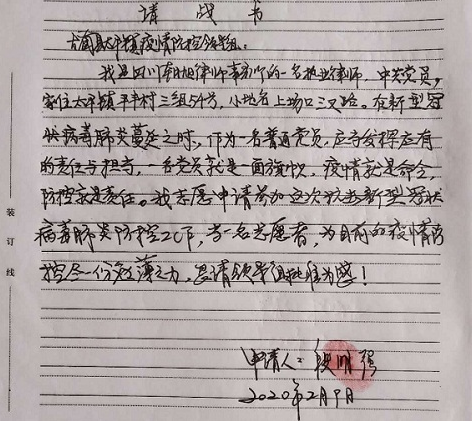 请战书
太平镇疫情防控领导组:
我是四川本旭律师事务所的一名执业律师,中共党员,
家住太平镇平丰村三组54号,小地名上场口三叉路。在新型冠
状病毒肺炎蔓延之时,作为一名普通党员,应当发挥应有
的责任与担当,一名党员就是一面旗帜,疫情就是命令,
防控就是责任。我志愿申请参加这次抗击新型冠状
病毒肺炎防控工作,当一名志愿者,为目前的疫情防
控尽一份微薄之力,恳请领导组批准为感!
申请人:段明强
2020年2月9日
装订线